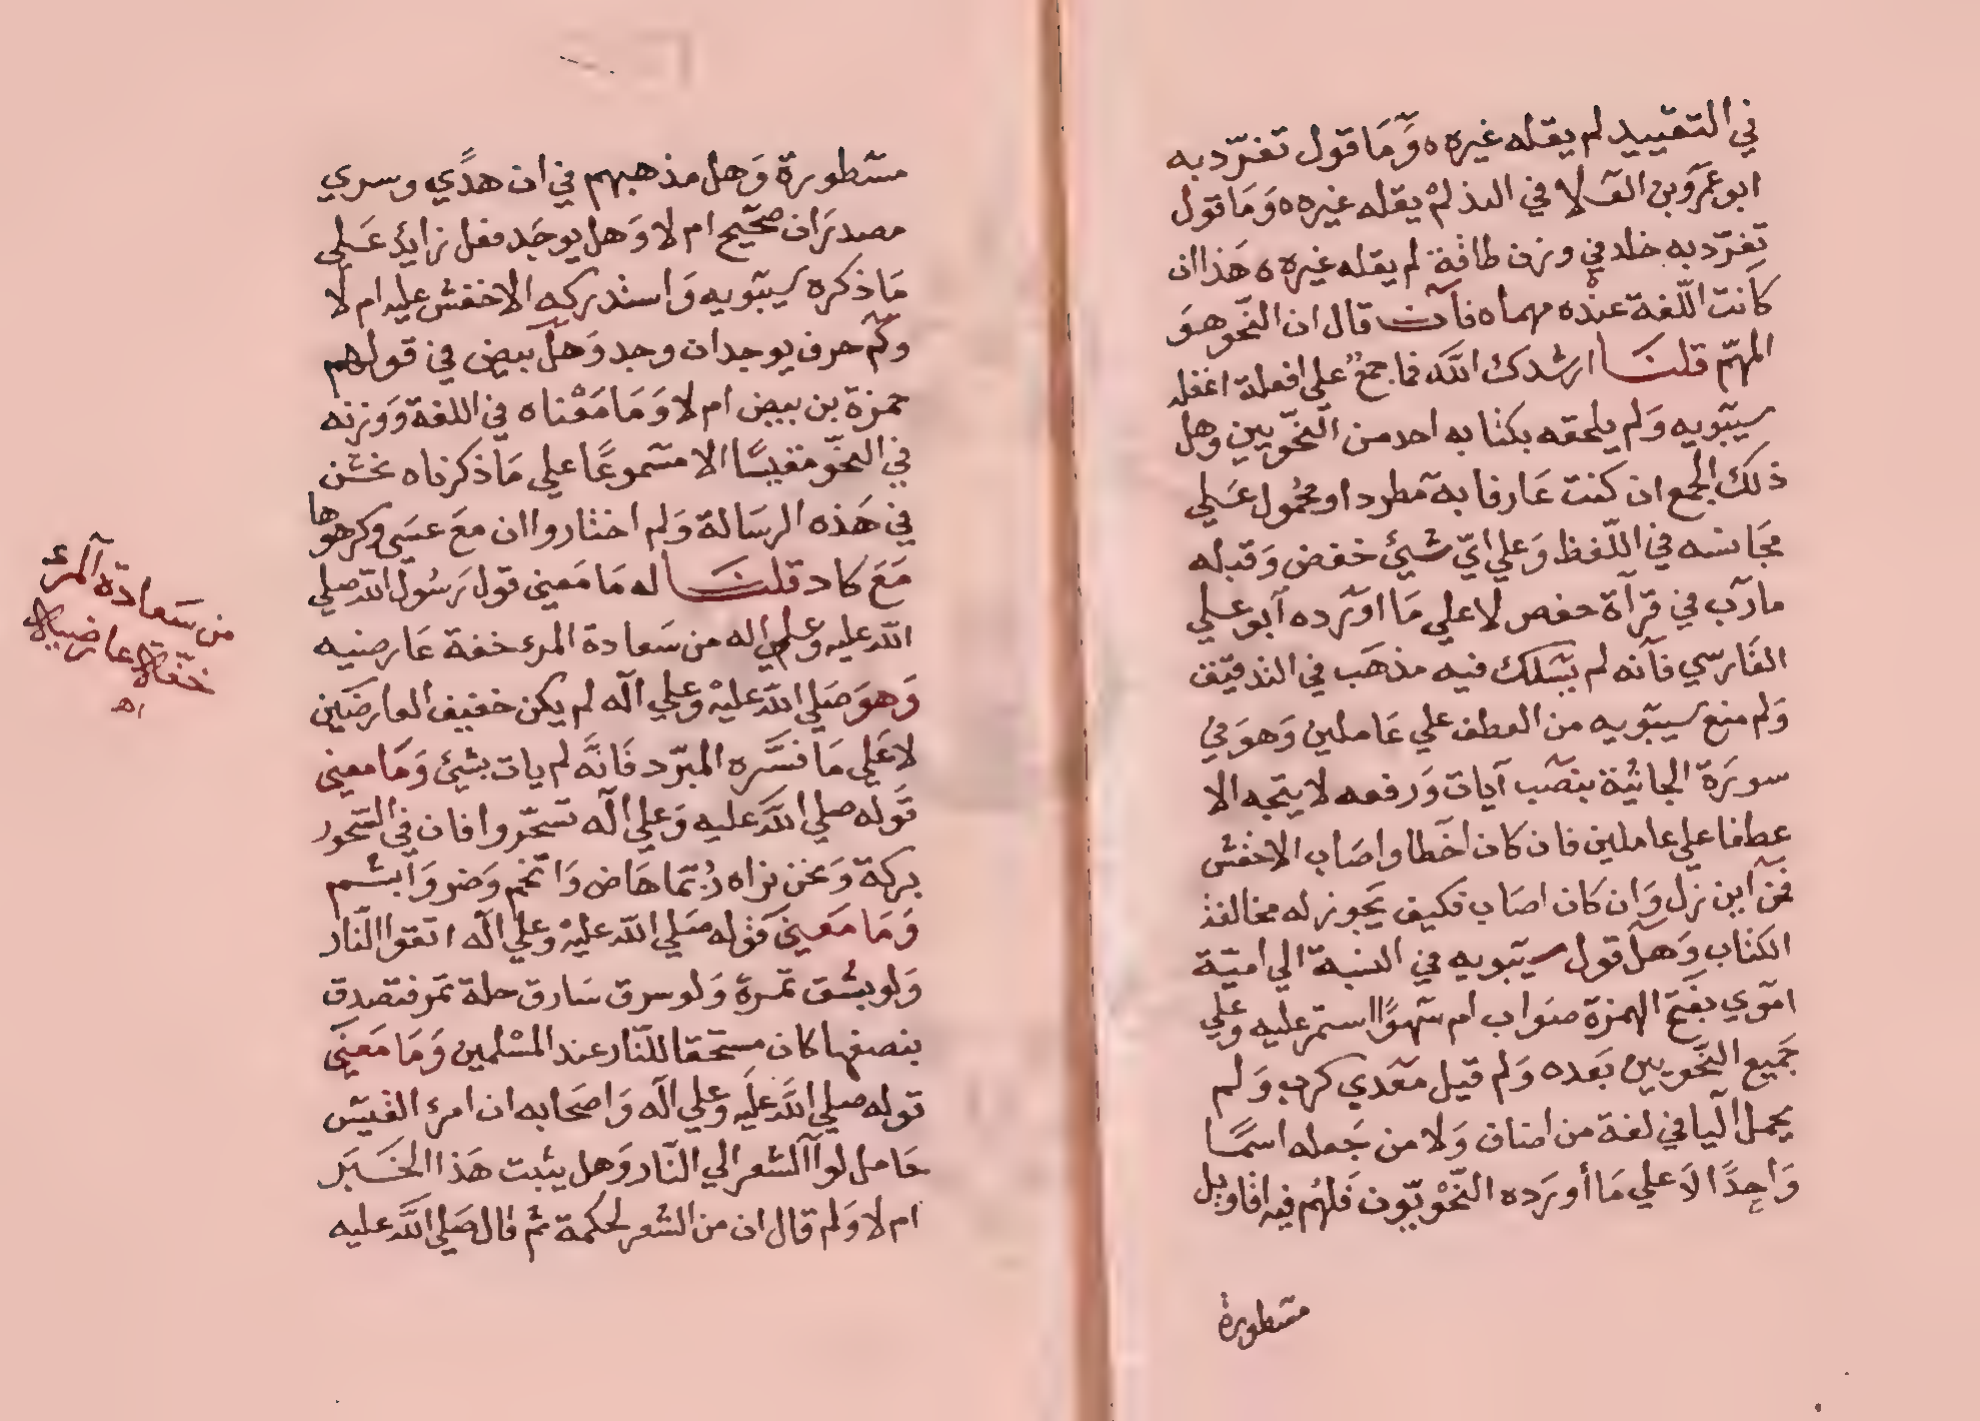 في التقييد لم يقله غيره ه وَمَا قول تفرّد به
ابو عمرَو بن العَلا في البذ لمْ يقله غيره ه وَمَا قول
تفرّد به خلد في وزن طاقة لم يقله غيره ه هَذا ان
كانت اللّغة عنْده مهماه فآن قال ان النّحو هوَ
المهمّ قلنَا ارشدك اللّه فما جمعٌ علي افعلة اغفله
سيبَويه وَلم يلحقه بكتابه احد من النّحَويين وهل
ذلك الجمع ان كنت عَارفا به مطرد او محمول عَلي
مجَانسه في اللّفظ وَعلي ايّ شيئ خفض وَقبله
مارَب في قرآة حفص لا علي مَا اوَرده آبو عَلي
الفَارسّي فآنه لم يسَلك فيه مذهَب في التدقيق
وَلم منع سيبَويه من العطف علي عَاملين وَهوَ في
سورَة الجاثيُة بنصَب آيات وَرفعه لا يتجه الا
عطفا علي عاملين فان كان اخَطا واصَاب الاخفش
فمن آين نزل وَان كان اصَاب فكيف يَجوز له مخالفة
الكتاب وَهل قول سيبَويه في النسبة الي اميّة
امَوي بفتح الهمزة صَواب ام سَهوًا استمر عليه وَعلي
جَميع النحَويين بَعده وَلم قيل معَدي كرب وَلم
يحمل اليا في لغة من اضاف وَلا من جَعله اسمًا
وَاحِدًا لاَ علي مَا أورَده النّحْويّون فَلهُم فيه اقاويل
مسَطورة
مسَطورة وَهل مذهبهم في ان هدًي وسري
مصدرَان صَحّيح ام لا وَهل يوجَد فعل زايد عَلي
مَا ذكره سيبَويه وَاستدركه الاخفش عليه ام لا
وكَم حرف يوجد ان وجد وَهل بيض في قولهم
حمزة بن بيض ام لا وَمَا مَعْناه في اللغة وَوَزنه
في النحَو مقيسًا الا مسَموعًا علي مَا ذكرناه نحَن
في هَذه الرسَالة وَلم اختاروا ان معَ عسَي وكرهوها
مَعَ كاد قلنَا له مَا مَعني قول رَسُول اللّه صلي
اللّه عليه وَعلي اله من سَعادة المرء خفة عَارضيه
وَهوَ صَلي اللّه عليْه وَعلي الَه لم يكن خفيف العارضَين
لا عَلي مَا فسَّره المبرّد فَانَّه لم يات بشيئ وَمَا معني
قَوله صلي اللَّه عليه وَعلي الَه تسَحّروا فان في السّحور
بركة وَنحن نراه رُبّمَا هَاض وَاتخم وَضر وَآبشم
وَمَا معَني قَوْله صَلي اللّه عليْه وَعلي الَه اتقوا النّار
وَلو بشق تمَرة وَلو سرق سَارق حلة تمر فتصدق
بنصفها كان مستَحقا للنّار عند المسْلمين وَمَا مَعنَي
قوله صلي اللَّه علَيه وَعلي الَه وَاصَحابه ان امرئ القيسَ
حَامل لوآ الشعر الي النّار وَهل يثبت هَذا الخبَر
ام لا وَلم قال ان من الشعر لحكمة ثم قال صَلي اللَّه عليه
من سَعادة المرْء
خفّة عارضيه
اه